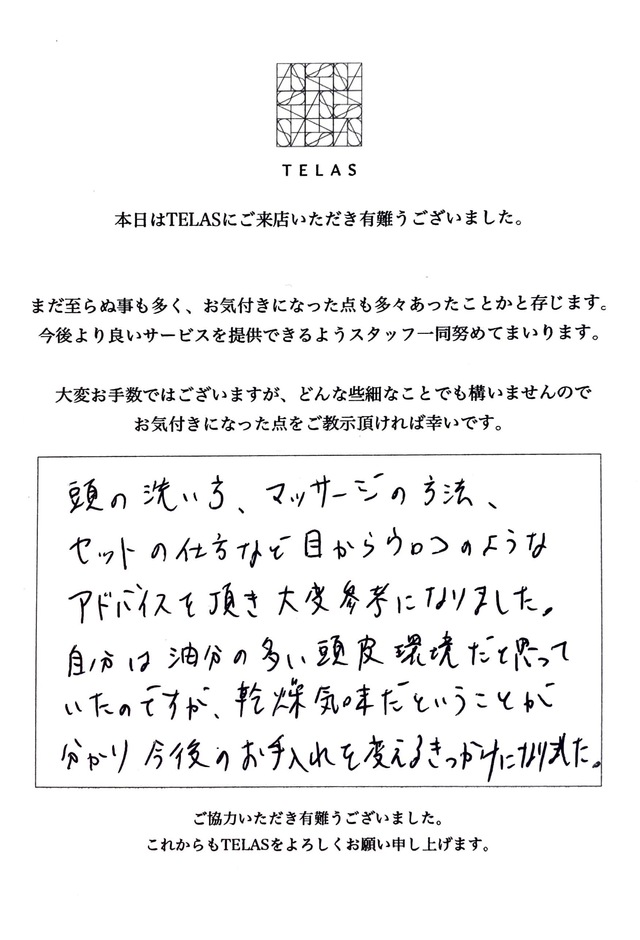 TELAS
本日はTELASにご来店いただき有難うございました。
まだ至らぬ事も多く、お気付きになった点も多々あったことかと存じます。
今後より良いサービスを提供できるようスタッフ一同努めてまいります。
大変お手数ではございますが、どんな些細なことでも構いませんので
お気付きになった点をご教示頂ければ幸いです。
頭の洗い方、マッサージの方法、
セットの仕方など目からウロコのような
アドバイスを頂き大変参考になりました。
自分は油分の多い頭皮環境だと思って
いたのですが、乾燥気味だということが
分かり今後のお手入れを変えるきっかけになりました。
ご協力いただき有難うございました。
これからもTELASをよろしくお願い申し上げます。